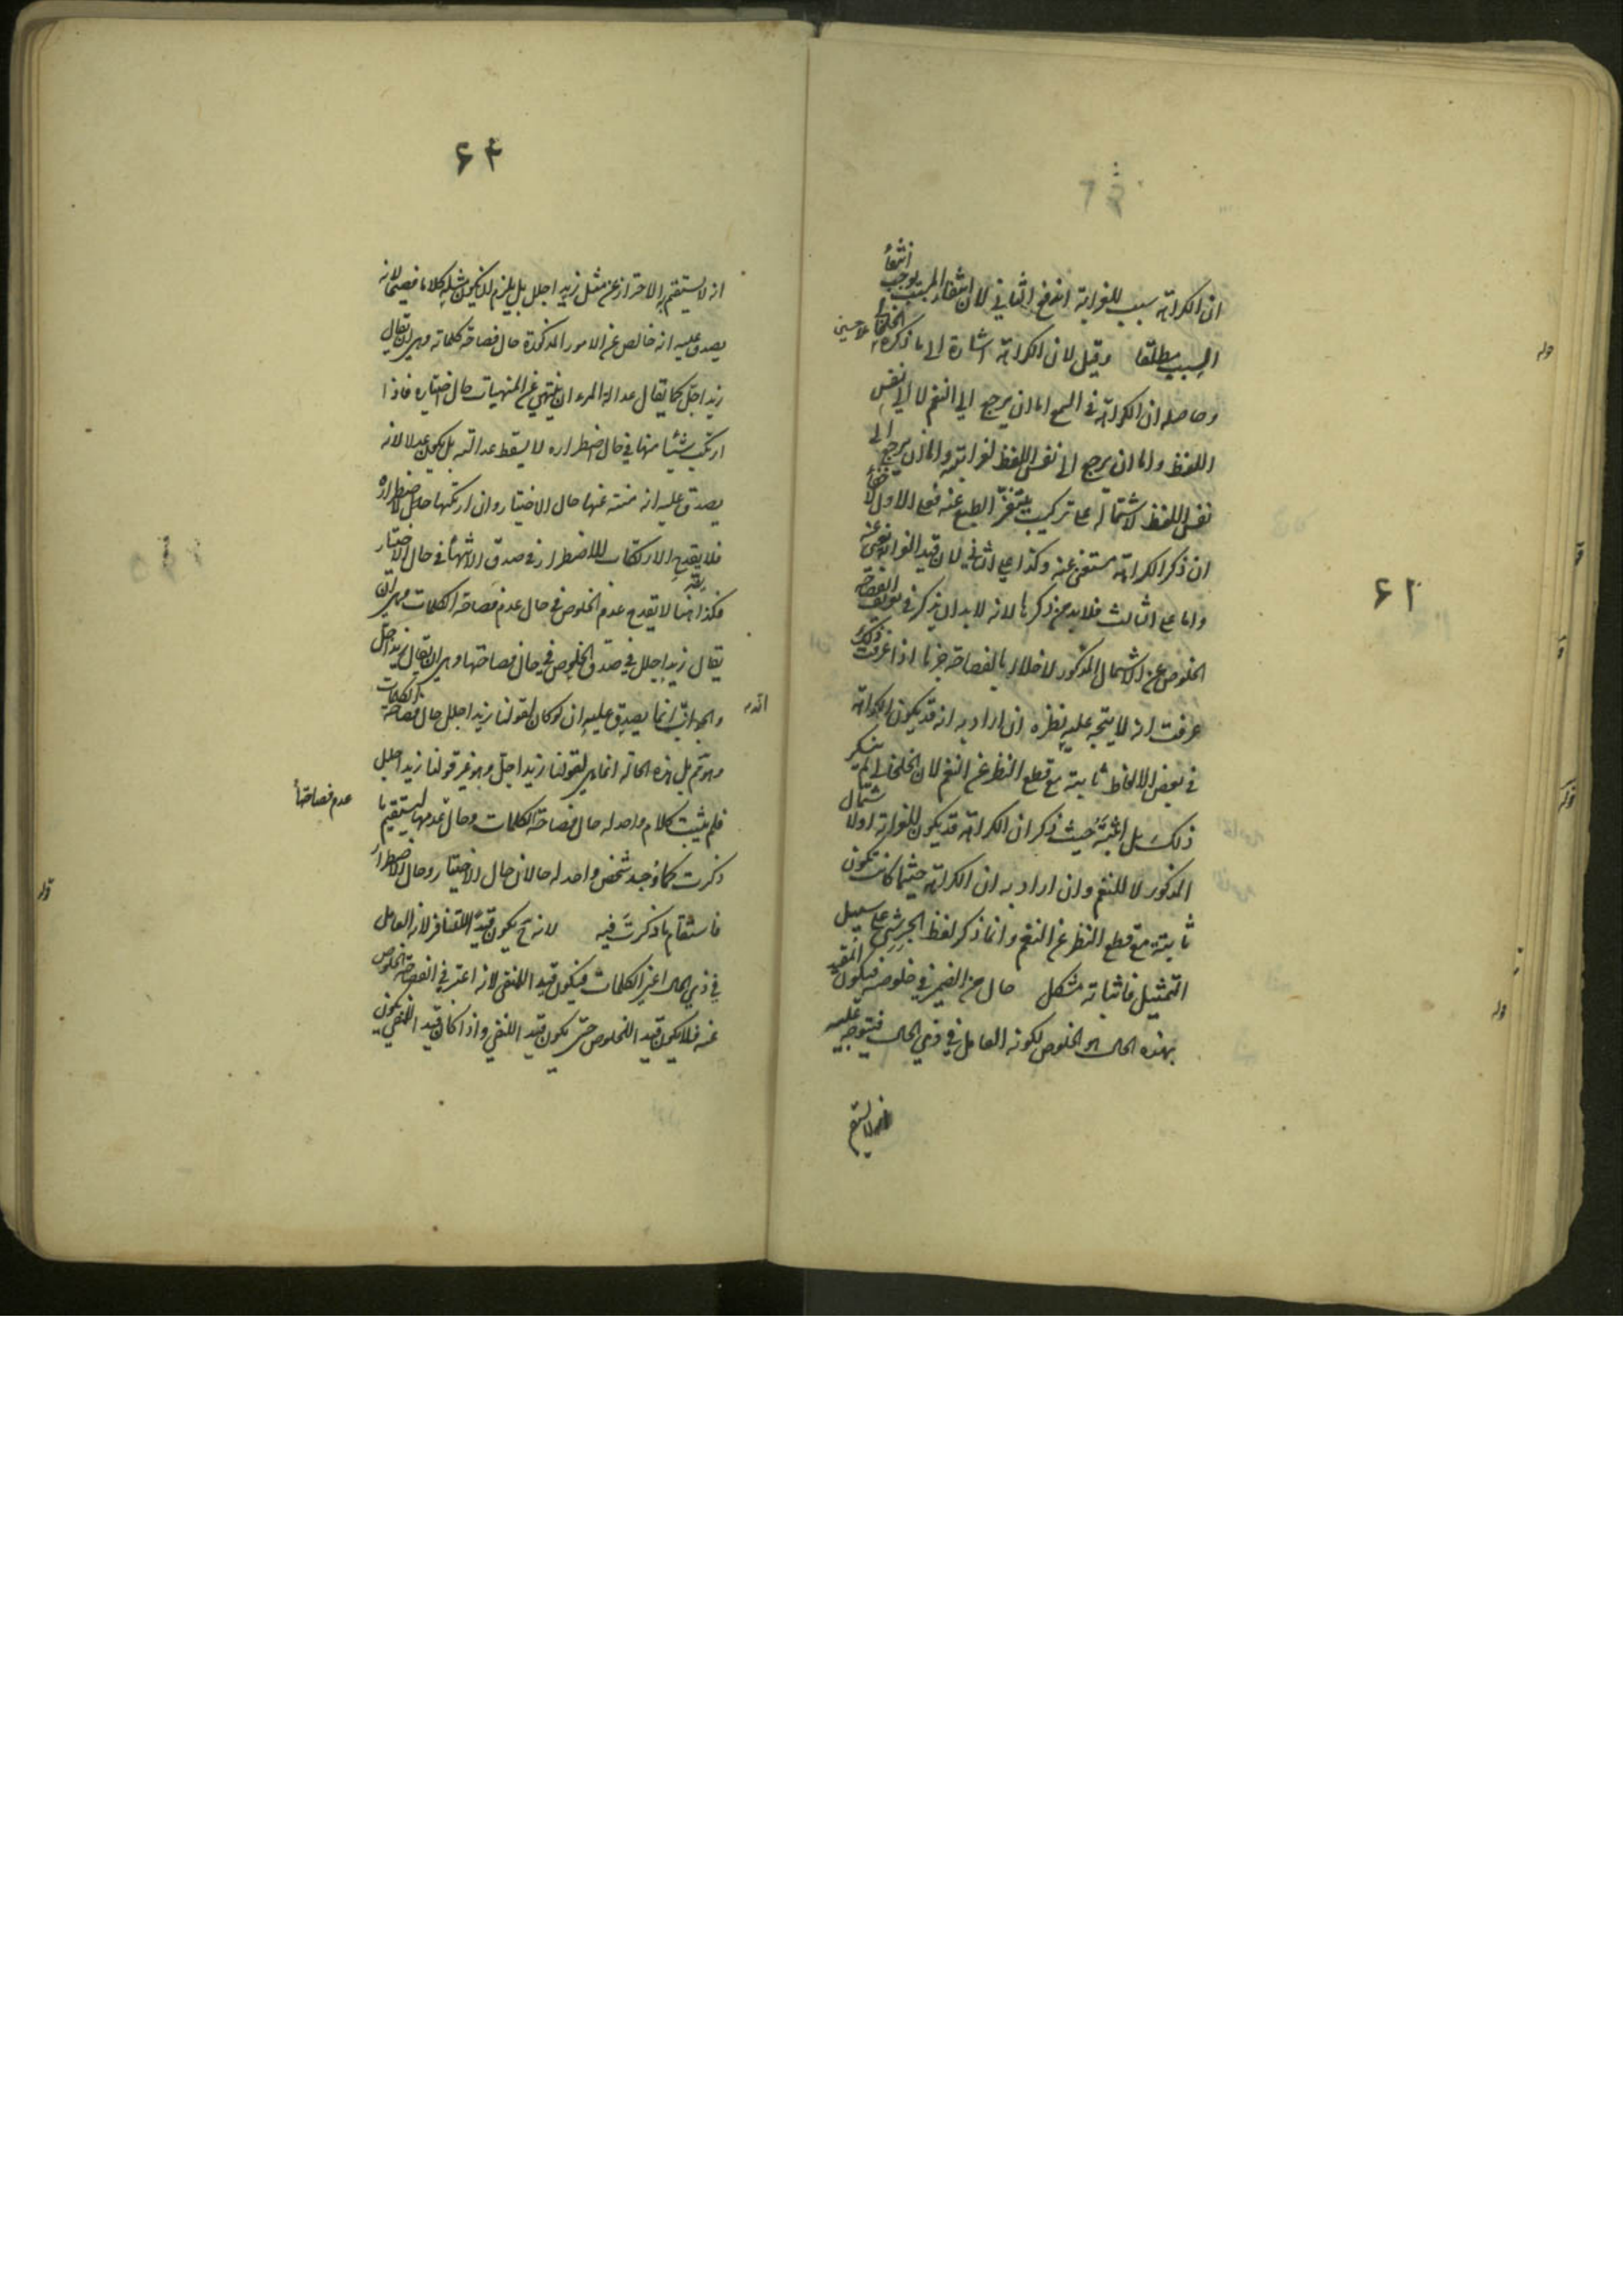 ان الكراهة سبب للغرابة اندفع الثاني لان انتفاء المسبب يوجب انتفاء
السبب مطلقا وقيل لان الكراهة اشارة الى ما ذكره الخلخالي
وحاصله ان الكراهة في السمع اما ان يرجع الى النغم لا الى نفس
اللفظ واما ان يرجع الى نفس اللفظ لغرابته واما ان يرجع الى
نفس اللفظ لاشتماله على تركيب يتنفر الطبع عنه فعلى الاول لا خفاء
ان ذكر الكراهة مستغنى عنه وكذا على الثاني لان قيد الغرابة يغني عنه
واما على الثالث فلا بد من ذكرها لانه لا بد ان يذكر في تعريف الفصاحة
الخلوص عن الاشتمال المذكور لاخلاله بالفصاحة جزما اذا عرفت ذلك
عرفت انه لا يتجه عليه نظره ان اراد به انه قد يكون الكراهة
في بعض الالفاظ ثابتة مع قطع النظر عن النغم لان الخلخالي لم ينكر
ذلك بل اثبته حيث ذكر ان الكراهة قد يكون للغرابة او لاشتمال
المذكور لا للنغم وان اراد به ان الكراهة حيثما كانت تكون
ثابتة مع قطع النظر عن النغم وانما ذكر لفظ الجرشى على سبيل
التمثيل فاثباته مشكل حال من الضمير في خلوصه فيكون المقيد
بهذه الحال هو الخلوص لكونه العامل في ذي الحال فيتوجه عليه
انه لا يستقيم
۶۲
۶۴
انه لا يستقيم به الاحتراز عن مثل زيد اجلل بل يلزم ان يكون مثله كلاما فصيحا لانه
يصدق عليه انه خالص عن الامور المذكورة حال فصاحة كلماته وهي ان يقال
زيد اجل كما يقال عدالة المرء ان ينتهي عن المنهيات حال اختياره فاذا
ارتكب شيئا منها في حال اضطراره لا يسقط عدالته بل يكون عدلا لانه
يصدق عليه انه منته عنها حال الاختيار وان ارتكبها حال الاضطرار
فلا يقدح الارتكاب للاضطرار في صدق الانتهاء في حال الاختيار
فكذا هنا لا يقدح عدم الخلوص في حال عدم فصاحة الكلمات وهي ان
يقال زيد اجلل في صدق الخلوص في حال فصاحتها وهي ان يقال زيد اجل
والجواب انما يصدق عليه ان لو كان لقولنا زيد اجلل حال فصاحة الكلمات
وهو ثم بل هذه الحالة انما هي لقولنا زيد اجل وهو غير قولنا زيد اجلل
فلم يثبت كلام واحد له حال فصاحة الكلمات وحال عدمها ليستقيم ما
عدم فصاحتها
ذكرت كما وجد شخص واحد له حالان حال الاختيار وحال الاضطرار
فاستقام ما ذكرت فيه لانه ح يكون قيدا للتنافر لانه العامل
في ذي الحال اعني الكلمات فيكون قيد المنفي لانه اعتبر في الفصاحة الخلوص
عنه فلا يكون قيد الخلوص حتى يكون قيد النفي واذا كان قيد المنفي يكون